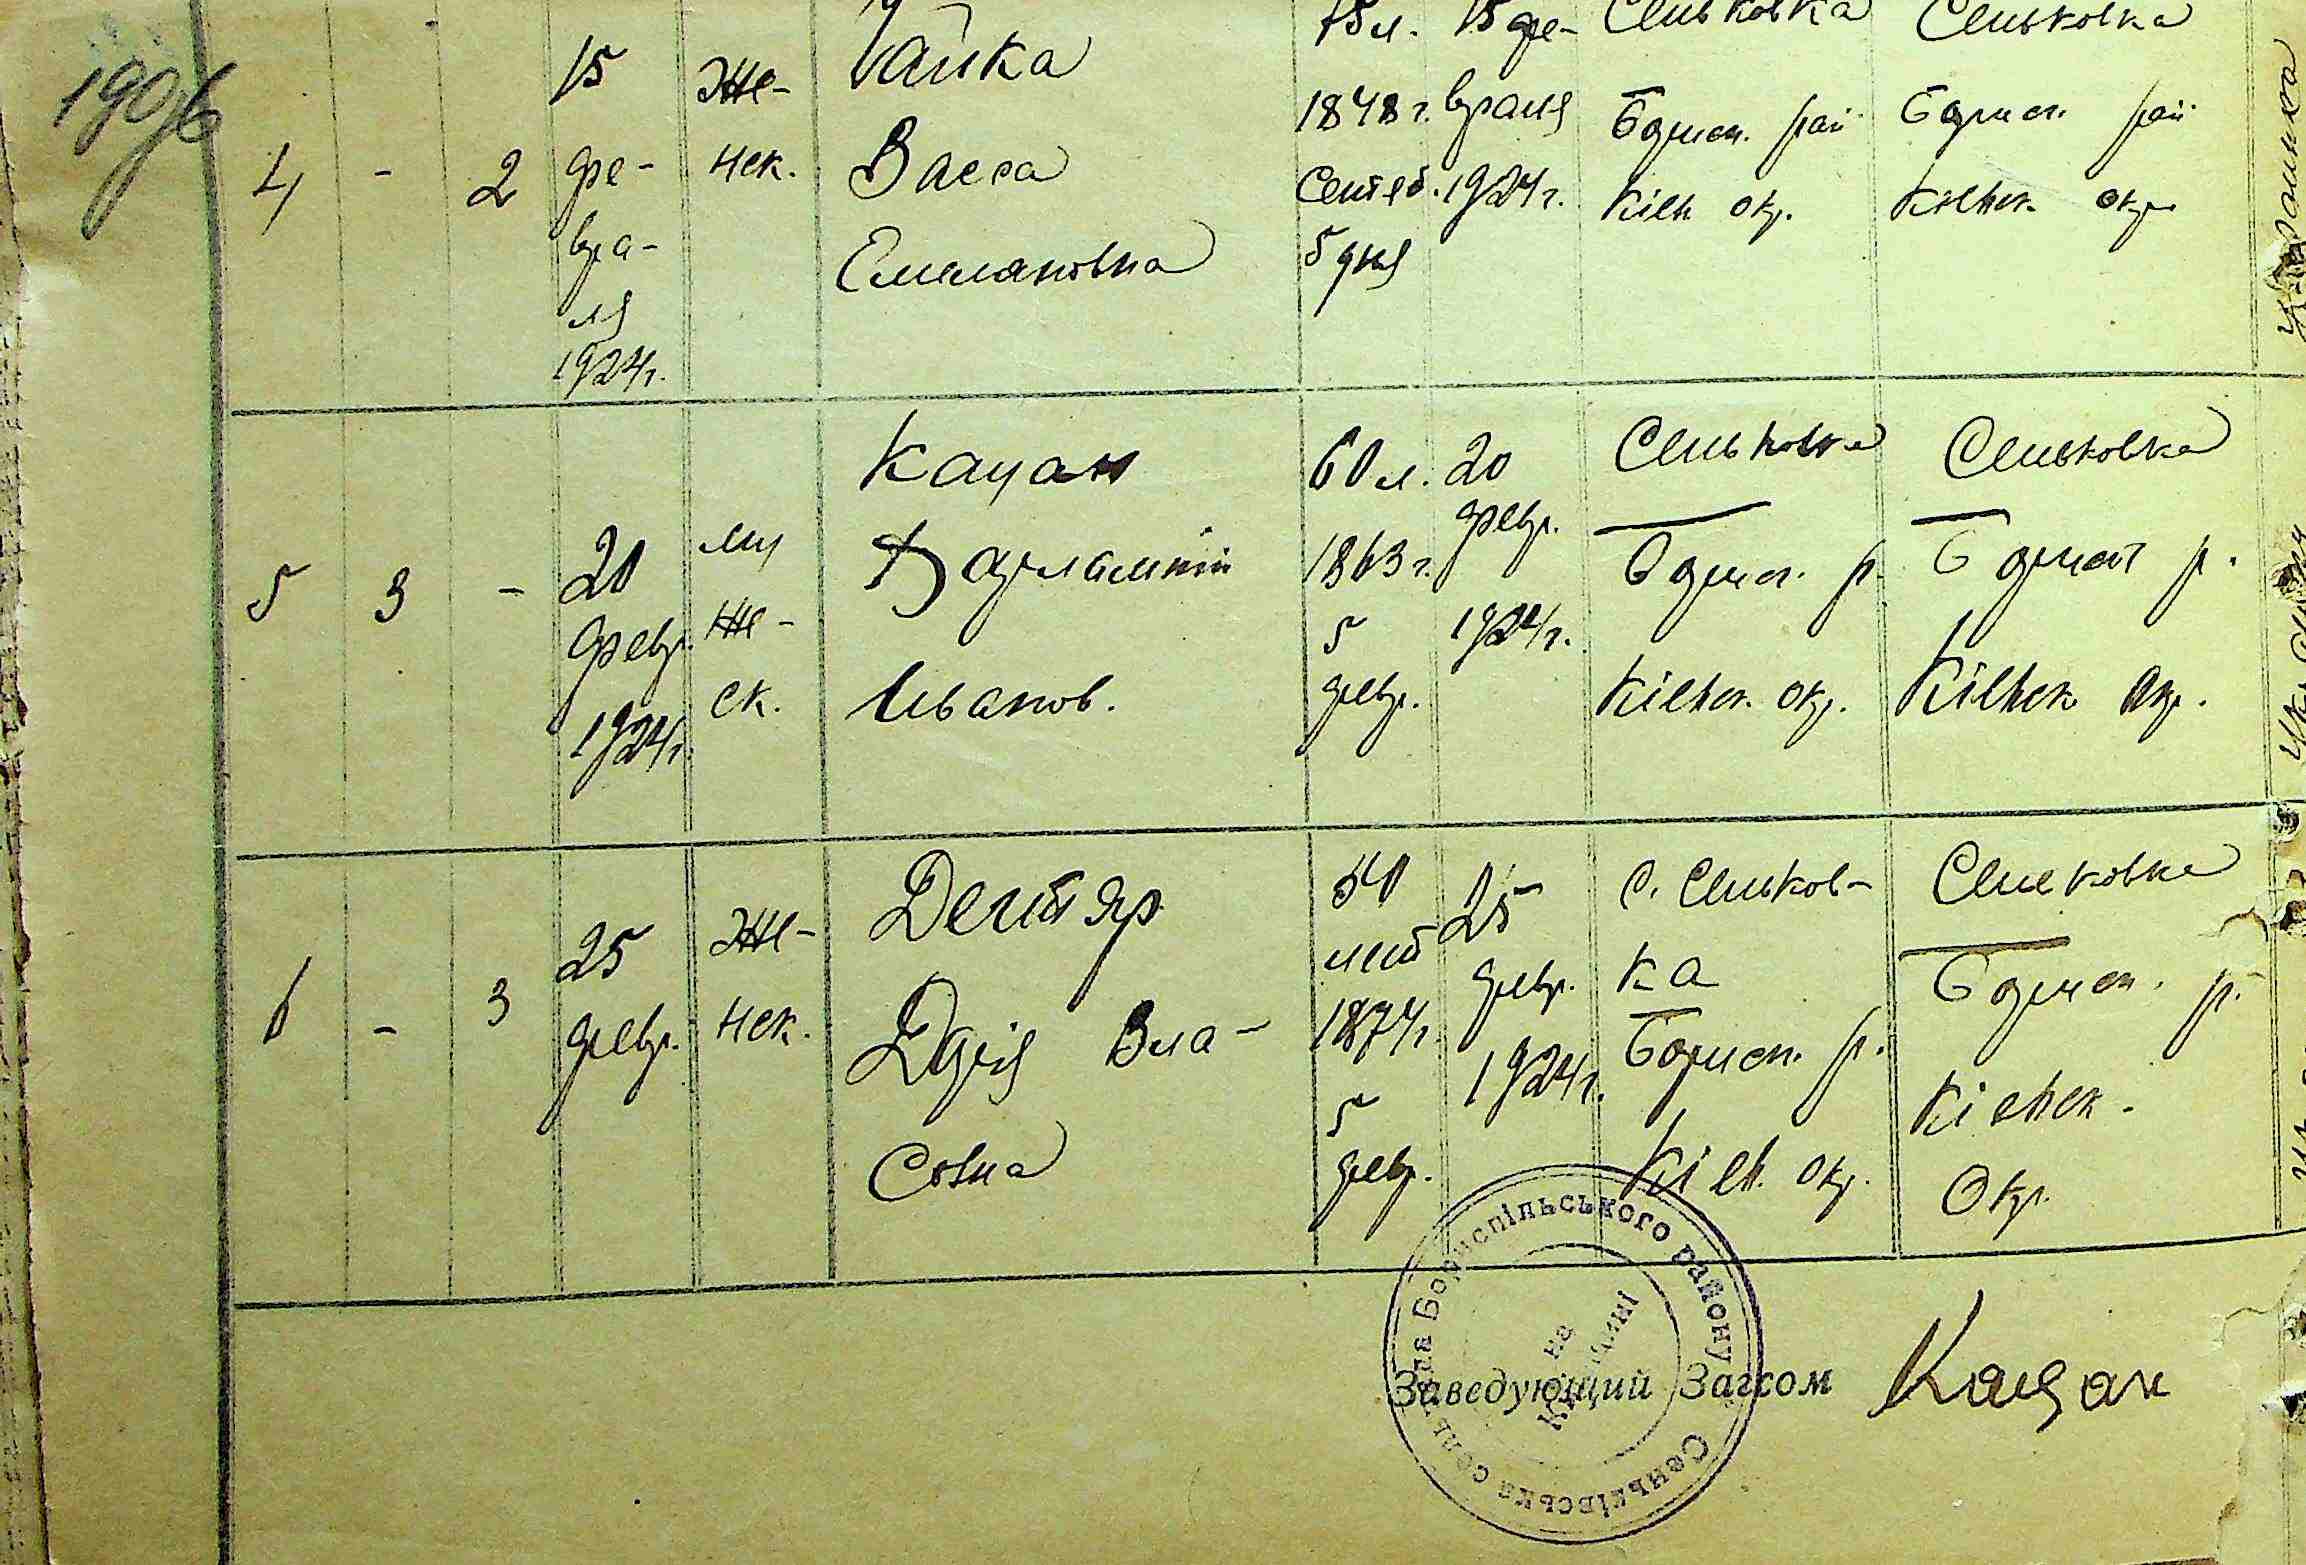 190 об
4 - 2
15 фе- вра- ля 1924 г.
Же- нск.
Чайка
Васса
Емельяновна
75 л.
1848 г.
Сентяб.
5 дня
15 фе-
враля
1924 г.
Сеньковка
Борисп. рай
Кіев окр.
Сеньковка
Борисп. рай
Кіевск. окр.
5 3 -
20
февр.
1924 г.
му
же-
ск.
Кацан
Харлампій
Иванов.
60 л.
1863 г.
5
февр.
20
февр.
1924 г.
Сеньковка
Борисп. р.
Кіевск. окр.
Сеньковка
Борисп р.
Кіевск окр.
6 - 3
25
февр.
Же-
нск.
Дегтяр
Дарія Вла-
совна
50
лет
1874 г.
5
февр.
25
февр.
1924 г.
с. Сеньков-
ка
Борисп. р.
Кіев. окр.
Сеньковка
Борисп. р.
Кіевск.
Окр.
Заведующий Загсом Кацан
Сеньківська сельрада Бориспільського району
на
Київщині